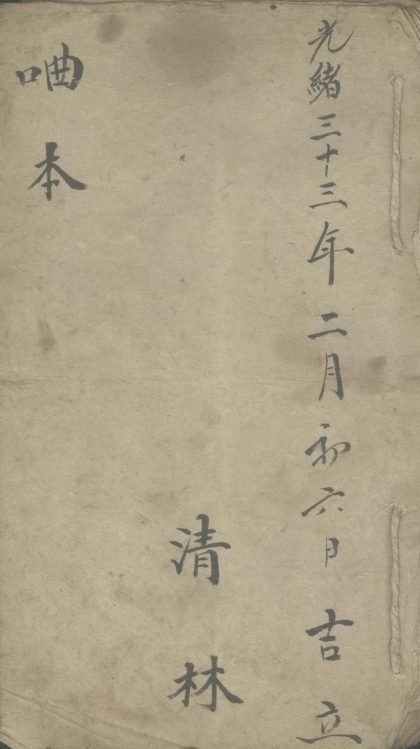 光緒三十三年二月初六日吉立
清林
㖹本